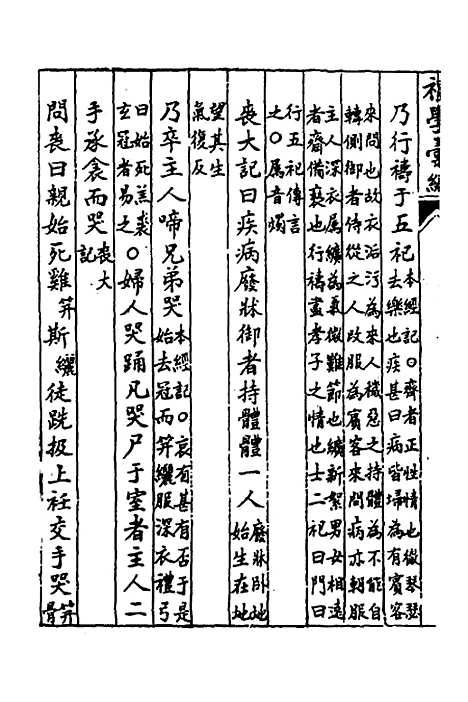 禮學彙編
乃行禱于五祀本經記○齊者正性情也徹琴瑟
去樂也疾甚曰病皆埽為有賓客
來問也故衣沿污為來人穢惡之持體為不能自
轉側御者侍從之人改服為賓客來問病亦朝服
主人深衣屬纊為氣微難節也纊新絮男女相遠
者齋備褻也行禱盡孝子之情也士二祀曰門曰
行五祀傳言
之○屬音燭
喪大記曰疾病廢牀御者持體體一人廢牀卧地
始生在地
望其生
氣復反
乃卒主人啼兄弟哭本經記○哀有甚有否于是
始去冠而筓纚服深衣禮弓
曰始死羔裘
玄冠者易之○婦人哭踊凡哭尸于室者主人二
手承衾而哭喪大
記
問喪曰親始死雞筓斯纚徒跣扱上衽交手哭筓
骨